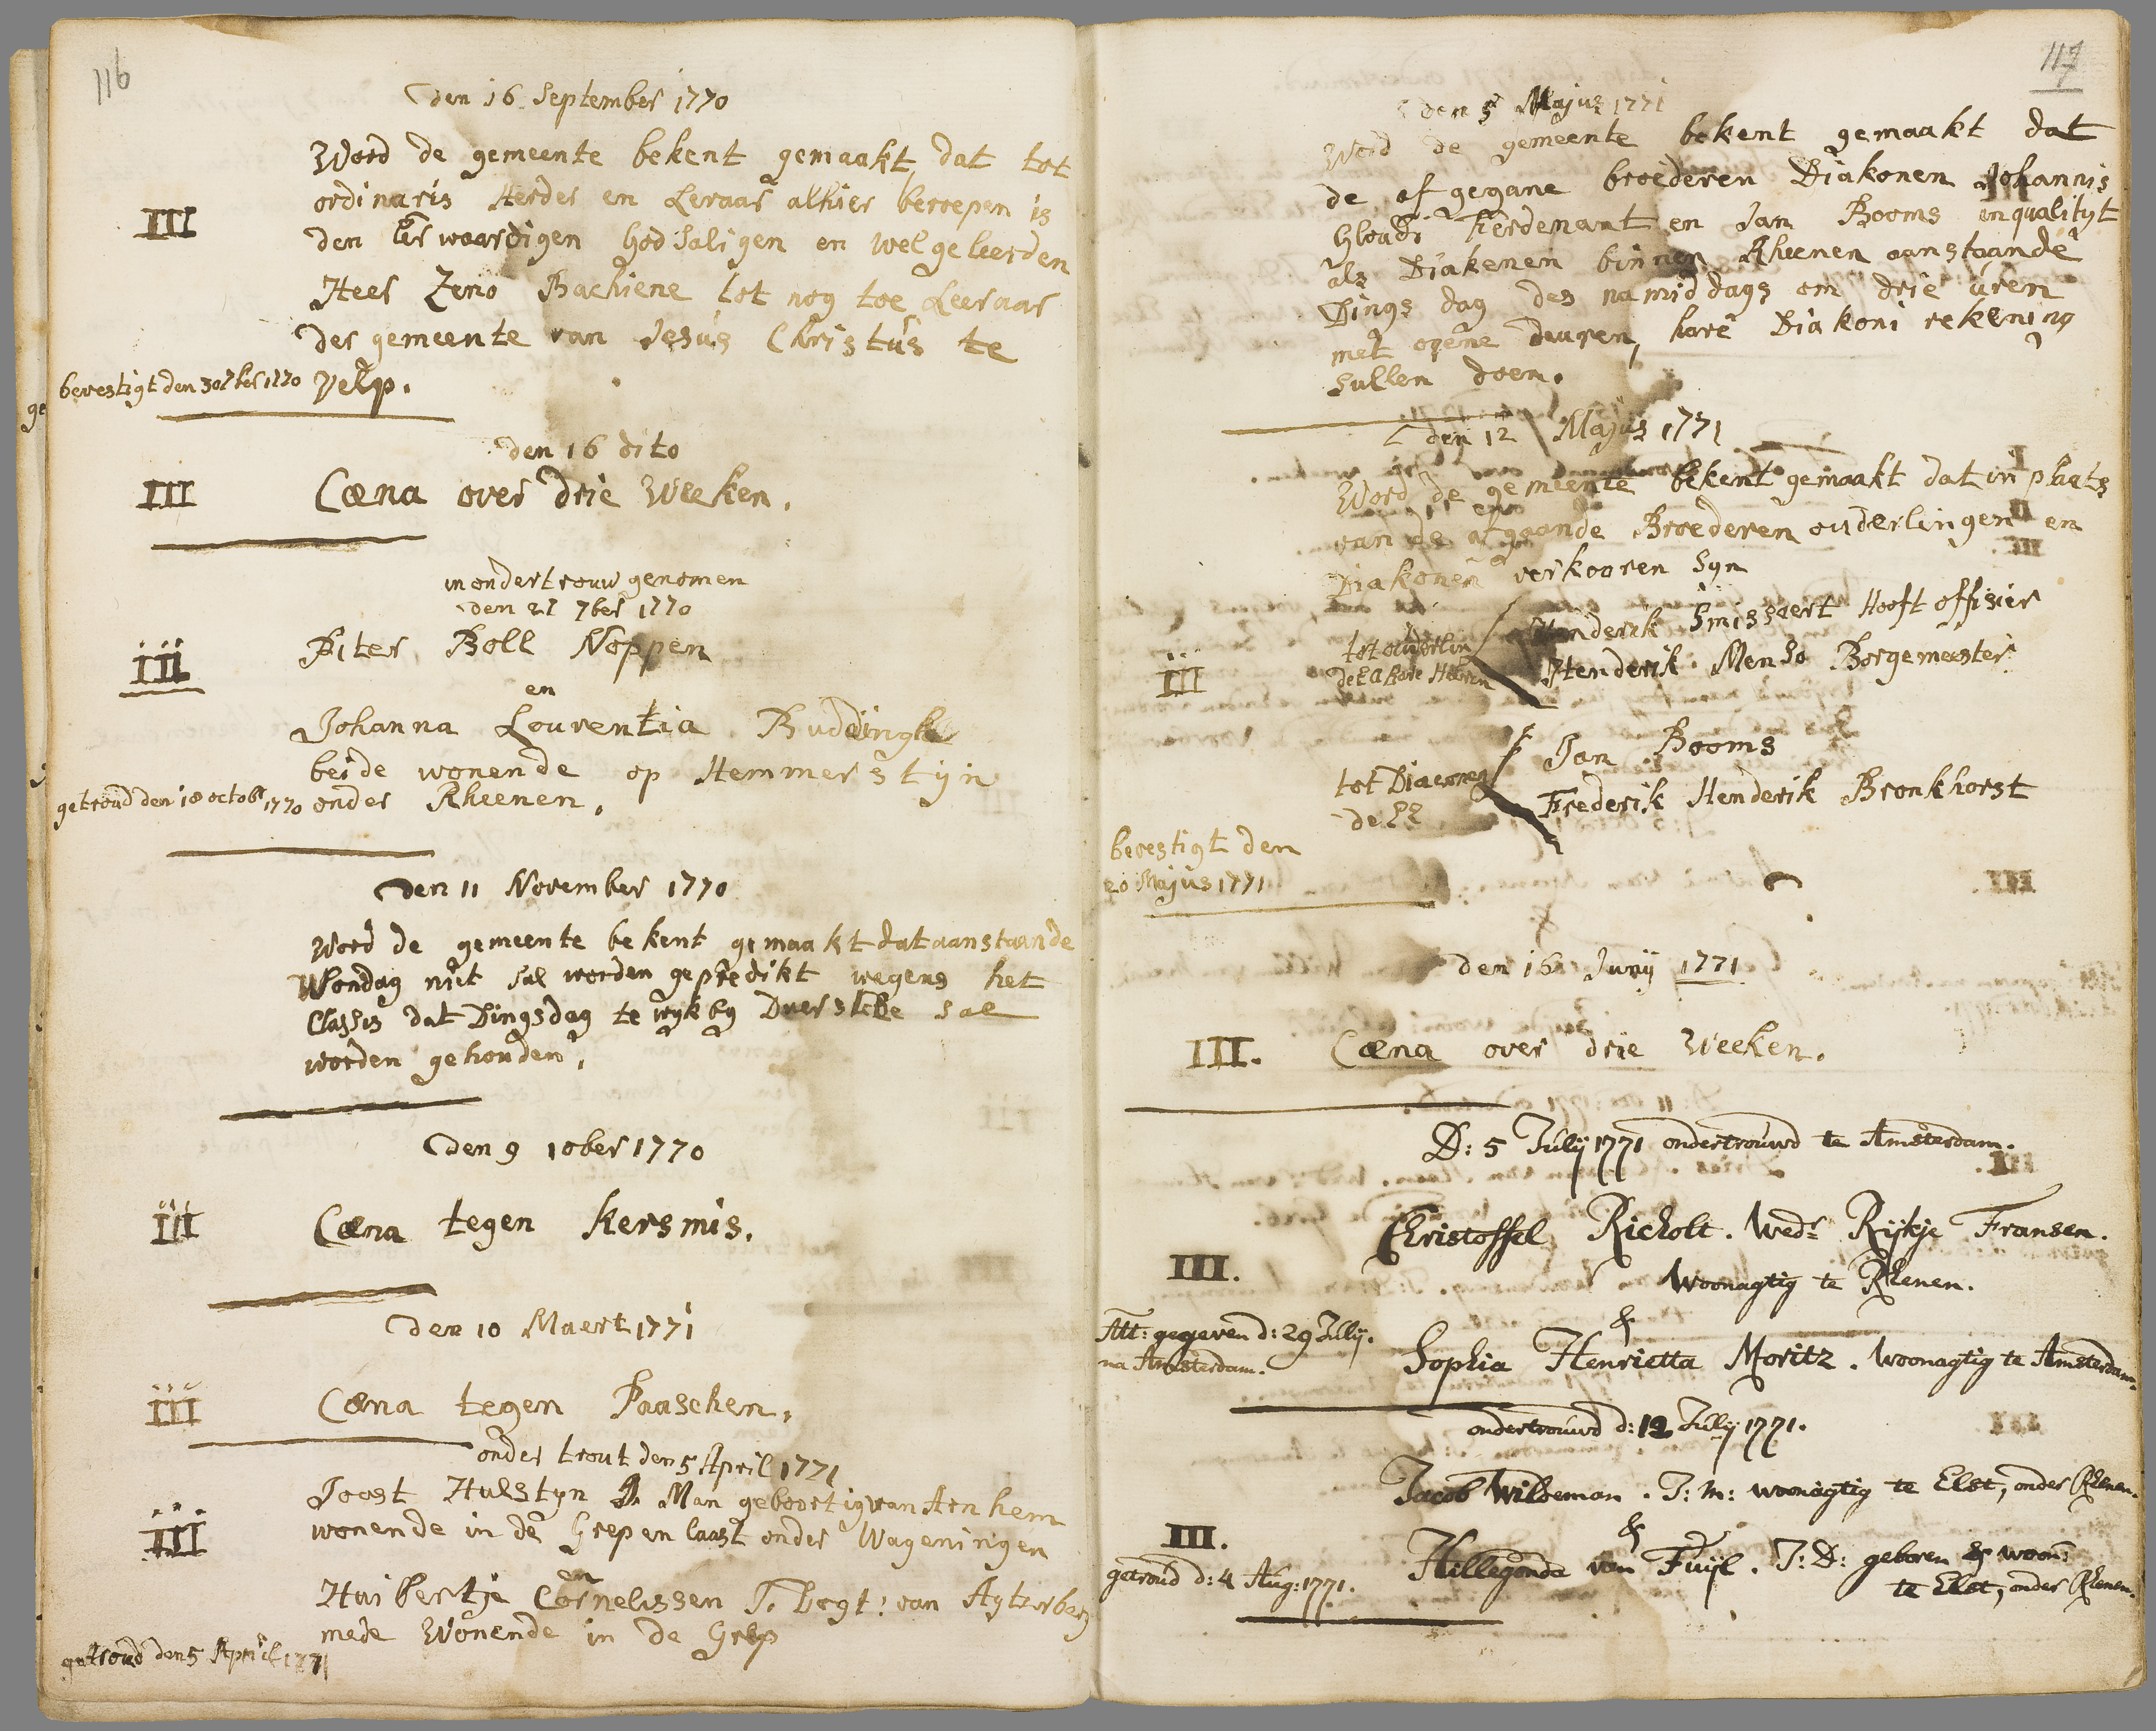 116
den 16 September 1770
Word de gemeente bekent gemaakt, dat tot
ordinaris Herder en Leraar alhier beroepen is
III
den Eerwaardigen Godsaligen en welgeleerden
Heer Zeno Bachiene tot nog toe Leeraar
der gemeente van Jesus Christus te
bevestigt den 30 7ber 1770
velp.
den 16 dito
III
Cœna over drie Weeken.
in ondertrouw genomen
den 27 7ber 1770
III
Piter Boll Noppen
en
Johanna Lourentia Buddingh
beide wonende op Hemmerstijn
getroud den 18 octobr 1770
onder Rheenen.
den 11 November 1770
Word de gemeente bekent gemaakt dat aanstaande
Wondag niet sal worden gepredikt wegens het
Classis dat Dingsdag te wyk by Duerstede sal
worden gehouden,
den 9 10ber 1770
III
Cœna tegen Kersmis.
den 10 Maert 1771
III
Cœna tegen Paaschen,
onder trout den 5 April 1771
Joost Hulstyn J. Man geboortig van Arnhem
III
wonende in de Grep en laast onder Wageningen
en
Huibertje Cornelissen J. Dogt: van
mede Wonende in de Grep
getroud den 5 April 1771
117
den 5 Majus 1771
Word de gemeente bekent gemaakt dat
de af gegane broederen Diakonen Johannis
Ferdenant en Jan Booms in qualityt
als Diakenen binnen Rheenen aanstaande
Dings dag des namiddags om drie uren
met opene deuren, hare Diakoni rekening
sullen doen.
den 12 Majus 1771
Word de gemeente bekent gemaakt dat in plaats
van de afgaande Broederen ouderlingen en
Diakonen verkooren syn
tot ouderlin
Henderik Smissaert Hooft offisier
III
de E Heeren
Henderik Menso Borgemeester
Jan Booms
tot Diaconen
Frederik Henderik Bronkhorst
de EE
bevestigt den
20 Majus 1771
den 16 Junij 1771
III.
Cœna over drie Weeken.
D: 5 Julij 1771 ondertrouwd te Amsterdam.
Christoffel Richolt. Wedr Rijkje Fransen.
III.
Woonagtig te Rhenen.
&
Att: gegeven d: 29 Julij.
na Amsterdam.
Sophia Henrietta Moritz. Woonagtig te Amsterdam.
ondertrouwd d: 12 Julij 1771.
Jacob Wildeman. J: M: woonagtig te Elst, onder Rhenen.
III.
&
getroud d: 4 Aug: 1771.
Hillegonda van Fuijl. J: D: geboren & woon:
te Elst, onder Rhenen.